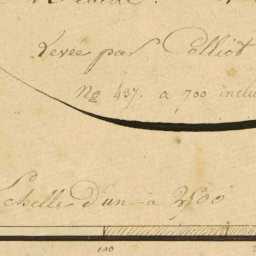 Levée par Colliot
No 437. a 700 inclu
Echelle d'un à 2500
100